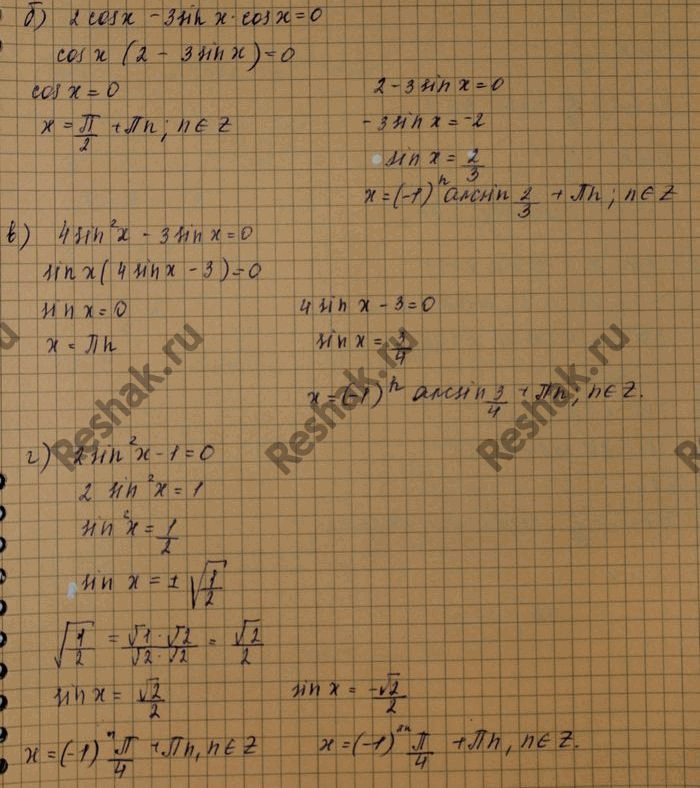 б) 2 cos x - 3 sin x · cos x = 0
cos x (2 - 3 sin x) = 0
cos x = 0
2 - 3 sin x = 0
x = П/2 + Пn; n ∈ Z
-3 sin x = -2
sin x = 2/3
x = (-1)ⁿ arcsin 2/3 + Пn; n ∈ Z
в) 4 sin²x - 3 sin x = 0
sin x (4 sin x - 3) = 0
sin x = 0
4 sin x - 3 = 0
x = Пn
sin x = 3/4
x = (-1)ⁿ arcsin 3/4 + Пn; n ∈ Z.
г) 2 sin²x - 1 = 0
2 sin²x = 1
sin²x = 1/2
sin x = ± √(1/2)
√(1/2) = √1 · √2 / √2 · √2 = √2/2
sin x = √2/2
sin x = -√2/2
x = (-1)ⁿ П/4 + Пn, n ∈ Z
x = (-1) П/4 + Пn, n ∈ Z.
Reshak.ru
Reshak.ru
Reshak.ru